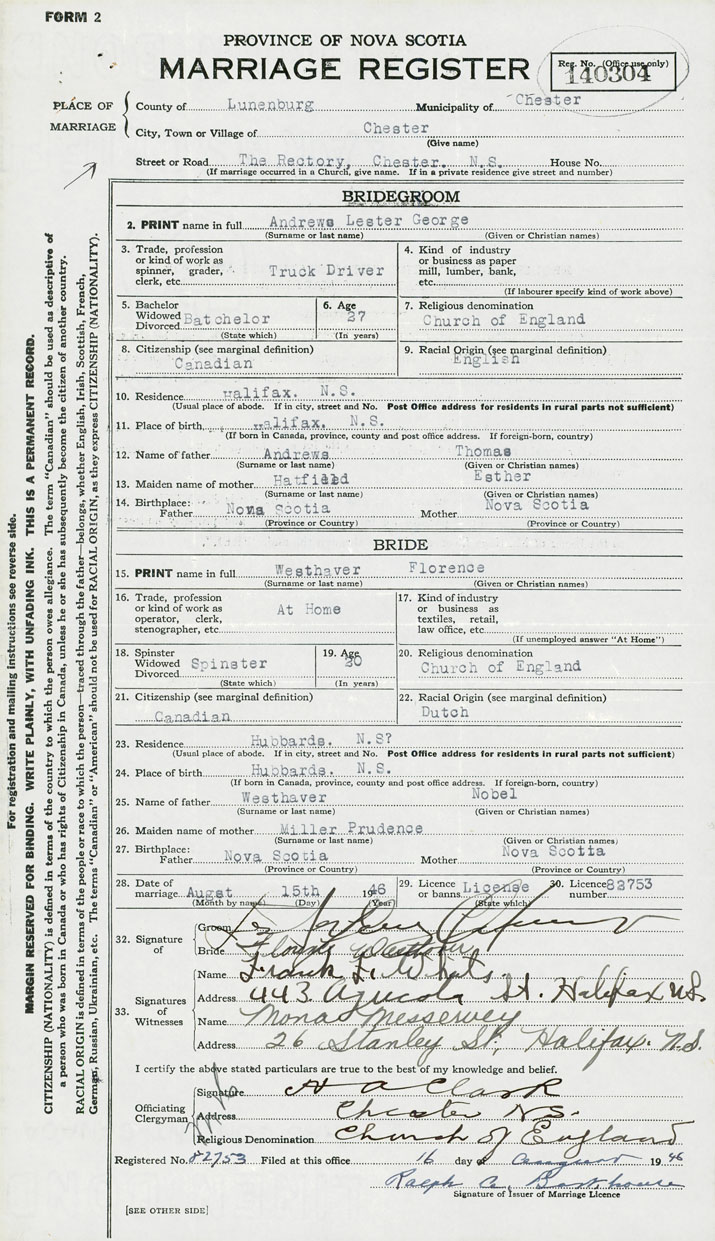 FORM 2
PROVINCE OF NOVA SCOTIA
MARRIAGE REGISTER
Reg. No. (Office use only)
140304
PLACE OF MARRIAGE
County of Lunenburg Municipality of Chester
City, Town or Village of Chester
(Give name)
Street or Road The Rectory, Chester. N.S. House No.
(If marriage occurred in a Church, give name. If in a private residence give street and number)
BRIDEGROOM
2. PRINT name in full Andrews Lester George
(Surname or last name) (Given or Christian names)
3. Trade, profession or kind of work as spinner, grader, clerk, etc. Truck Driver
4. Kind of industry or business as paper mill, lumber, bank, etc.
(If labourer specify kind of work above)
5. Bachelor Widowed Divorced Batchelor
(State which)
6. Age 27
(In years)
7. Religious denomination
Church of England
8. Citizenship (see marginal definition)
Canadian
9. Racial Origin (see marginal definition)
English
10. Residence Halifax. N.S.
(Usual place of abode. If in city, street and No. Post Office address for residents in rural parts not sufficient)
11. Place of birth Halifax. N.S.
(If born in Canada, province, county and post office address. If foreign-born, country)
12. Name of father Andrews Thomas
(Surname or last name) (Given or Christian names)
13. Maiden name of mother Hatfield Esther
(Surname or last name) (Given or Christian names)
14. Birthplace: Father Nova Scotia Mother Nova Scotia
(Province or Country) (Province or Country)
BRIDE
15. PRINT name in full Westhaver Florence
(Surname or last name) (Given or Christian names)
16. Trade, profession or kind of work as operator, clerk, stenographer, etc. At Home
17. Kind of industry or business as textiles, retail, law office, etc.
(If unemployed answer "At Home")
18. Spinster Widowed Divorced Spinster
(State which)
19. Age 20
(In years)
20. Religious denomination
Church of England
21. Citizenship (see marginal definition)
Canadian
22. Racial Origin (see marginal definition)
Dutch
23. Residence Hubbards. N.S?
(Usual place of abode. If in city, street and No. Post Office address for residents in rural parts not sufficient)
24. Place of birth Hubbards. N.S.
(If born in Canada, province, county and post office address. If foreign-born, country)
25. Name of father Westhaver Nobel
(Surname or last name) (Given or Christian names)
26. Maiden name of mother Miller Prudence
(Surname or last name) (Given or Christian names)
27. Birthplace: Father Nova Scotia Mother Nova Scotia
(Province or Country) (Province or Country)
28. Date of marriage Augst 15th 1946
(Month by name) (Day) (Year)
29. Licence or banns License
(State which)
30. Licence number 82753
32. Signature of
Groom
Bride Florence Westhaver
33. Signatures of Witnesses
Name Frank F.
Address 443 Agricola St. Halifax N.S.
Name Mona Messervey
Address 26 Stanley St, Halifax. N.S.
I certify the above stated particulars are true to the best of my knowledge and belief.
Officiating Clergyman
Signature H A Clark
Address Chester N.S.
Religious Denomination Church of England
Registered No. 82753 Filed at this office 16 day of August 1946
Ralph
Signature of Issuer of Marriage Licence
[SEE OTHER SIDE]
For registration and mailing instructions see reverse side.
MARGIN RESERVED FOR BINDING. WRITE PLAINLY, WITH UNFADING INK. THIS IS A PERMANENT RECORD.
CITIZENSHIP (NATIONALITY) is defined in terms of the country to which the person owes allegiance. The term "Canadian" should be used as descriptive of
a person who was born in Canada or who has rights of Citizenship in Canada, unless he or she has subsequently become the citizen of another country.
RACIAL ORIGIN is defined in terms of the people or race to which the person—traced through the father—belongs, whether English, Irish, Scottish, French,
German, Russian, Ukrainian, etc. The terms "Canadian" or "American" should not be used for RACIAL ORIGIN, as they express CITIZENSHIP (NATIONALITY).